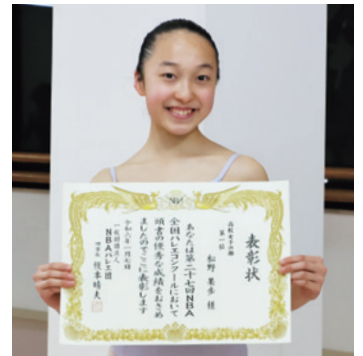 表彰状
高校女子の部
第一位
松野美歩 様
あなたは第二十七回NBA
全国バレエコンクールにおいて
頭書の優秀な成績をおさめ
ましたのでここに表彰します
令和六年一月七日
一般財団法人
NBAバレエ団
理事長 榎本晴夫